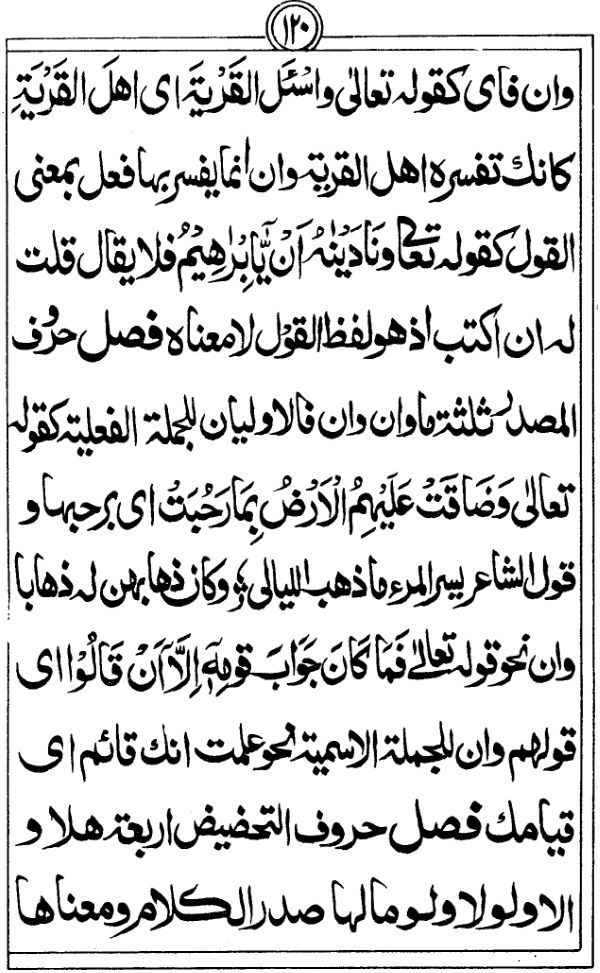 ١٢٠
وان فاى كقوله تعالى واسْئَل القَرْيَةَ اى اهلَ القَرْيَةِ
كانك تفسره اهل القرية وان انما يفسر بها فعل بمعنى
القول كقوله تعالى ونَادَيْنٰهُ اَنْ يّٰٓاِبْرٰهِيْمُ فلا يقال قلت
له ان اكتب اذ هو لفظ القول لا معناه فصل حروف
المصدر ثلثة ما وان وان فالاوليان للجملة الفعلية كقوله
تعالىٰ وَضَاقَتْ عَلَيْهِمُ الْاَرْضُ بِمَا رَحُبَتْ اى برحبها و
قول الشاعر يسر المرء ما ذهب الليالى ؛ وكان ذهابهن له ذهابا
وان نحو قوله تعالىٰ فَمَا كَانَ جَوَابَ قَوْمِهٖٓ اِلَّآ اَنْ قَالُوْا اى
قولهم وان للجملة الاسمية نحو علمت انك قائم اى
قيامك فصل حروف التحضيض اربعة هلا و
الا ولولا ولوما لها صدر الكلام ومعناها